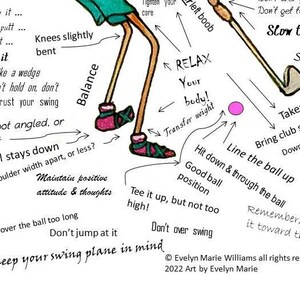 it ...
putt ...
it
like a wedge
't hold on, don't
trust your swing
not angled, or
l stays down
shoulder width apart, or less?
Maintain positive
attitude & thoughts
over the ball too long
Don't jump at it
keep your swing plane in mind
Knees slightly
bent
Balance
Tighten your
core
left boob
RELAX
Your
body!
Transfer weight
Good ball
position
Tee it up, but not too
high!
Don't over swing
Hit down & through the ball
Line the ball up
Don't get
Slow t
Take
Bring club
Down
Remember,
it toward th
© Evelyn Marie Williams all rights re
2022 Art by Evelyn Marie